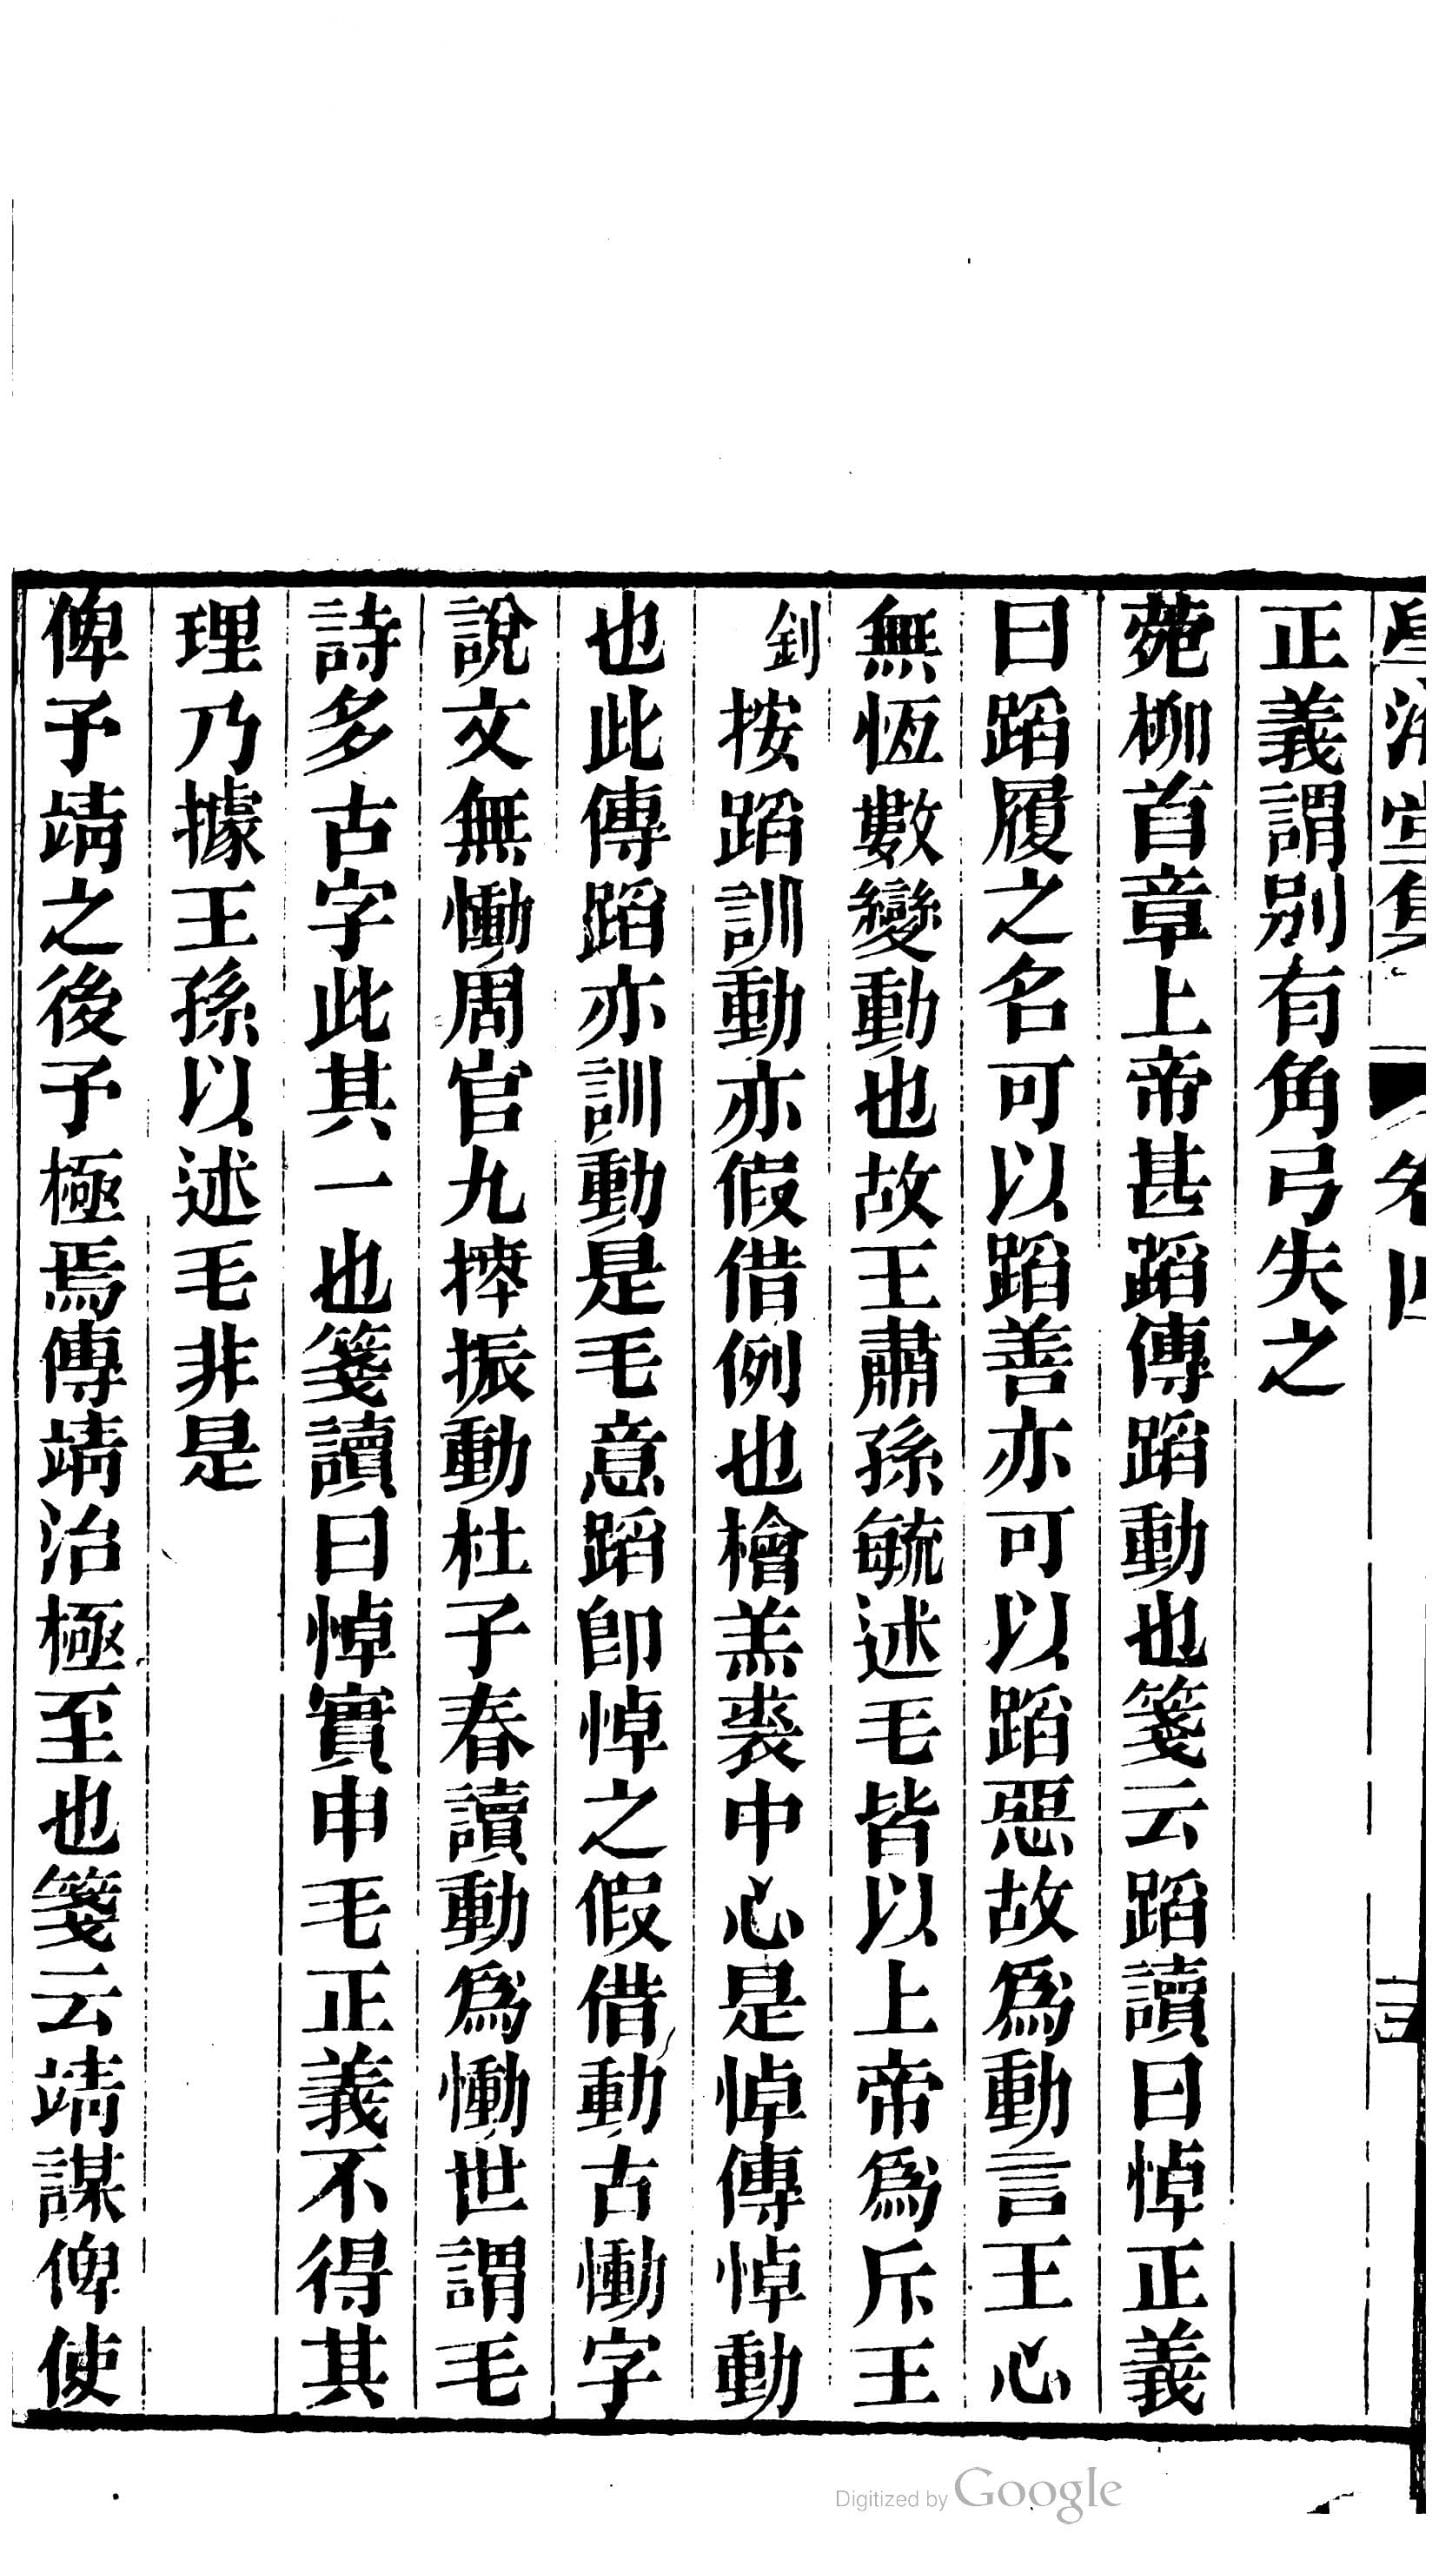 學海堂集 卷四 三
正義謂別有角弓失之
菀柳首章上帝甚蹈傳蹈動也箋云蹈讀曰悼正義
曰蹈履之名可以蹈善亦可以蹈惡故爲動言王心
無恆數變動也故王肅孫毓述毛皆以上帝爲斥王
釗按蹈訓動亦假借例也檜羔裘中心是悼傳悼動
也此傳蹈亦訓動是毛意蹈卽悼之假借動古慟字
說文無慟周官九𢷎振動杜子春讀動爲慟世謂毛
詩多古字此其一也箋讀曰悼實申毛正義不得其
理乃據王孫以述毛非是
俾予靖之後予極焉傳靖治極至也箋云靖謀俾使
Digitized by Google